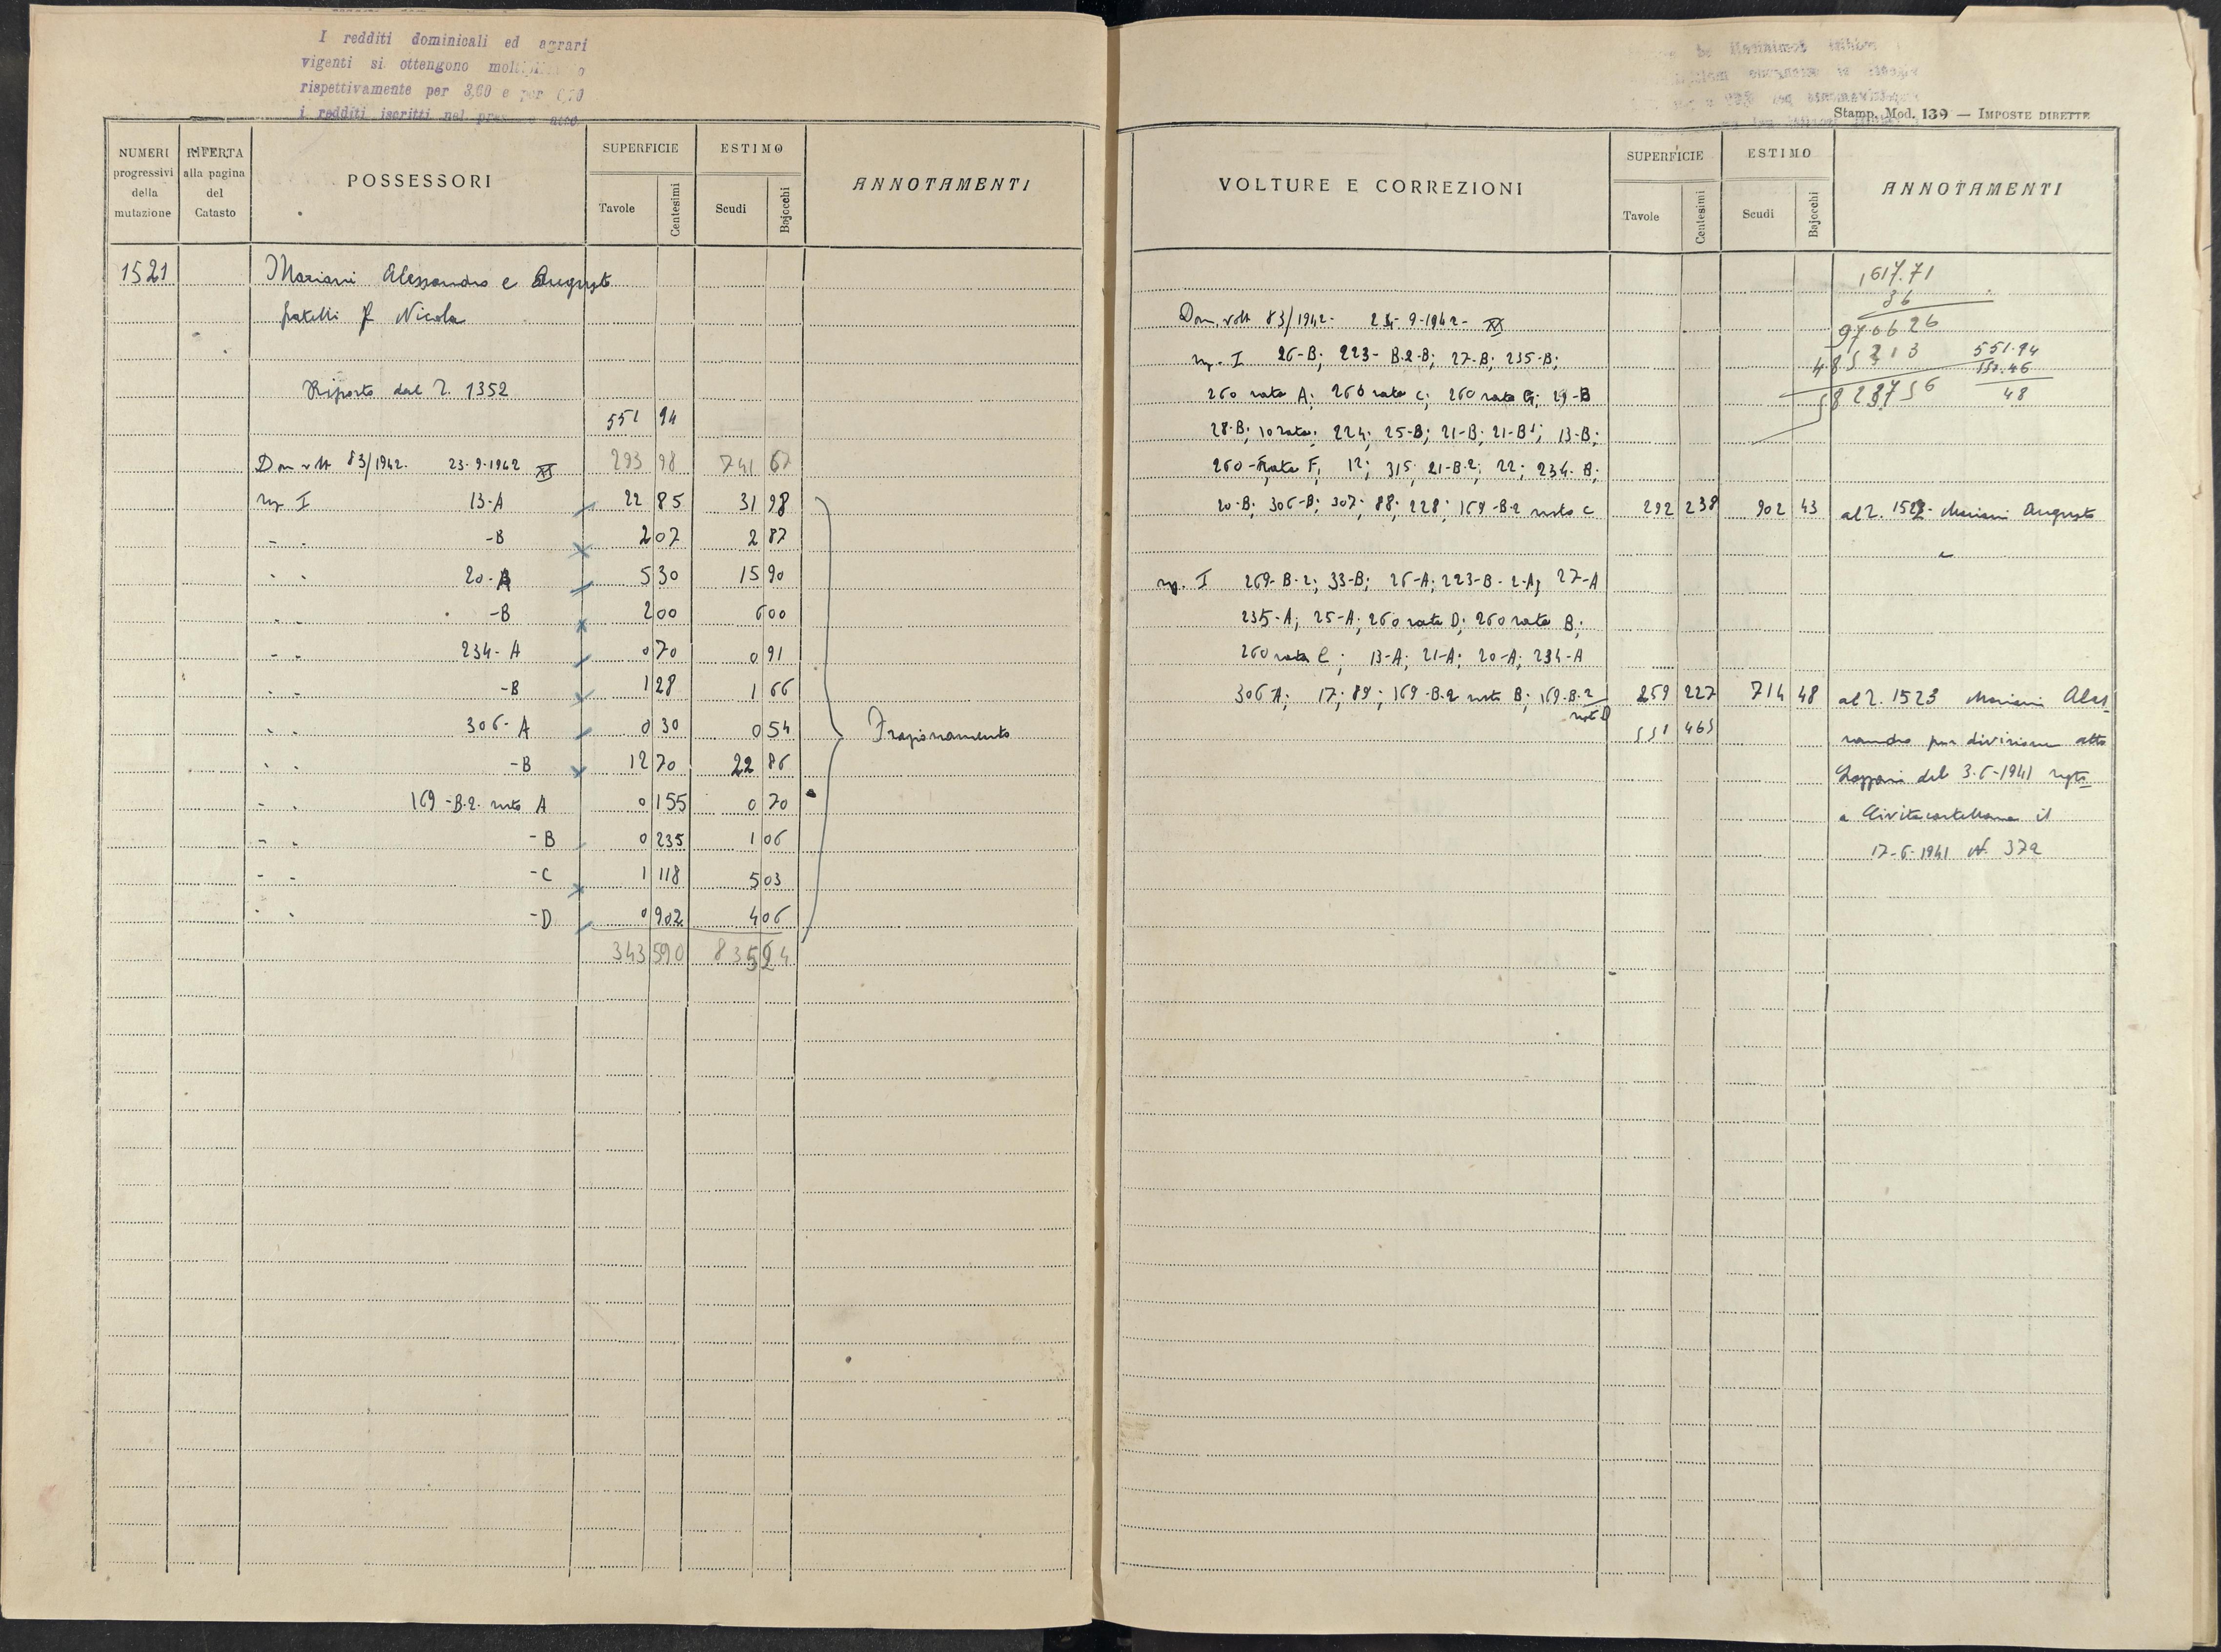 I redditi dominicali ed agrari
vigenti si ottengono
rispettivamente per 3,60 e per
i redditi iscritti nel
NUMERI progressivi della mutazione
RIFERTA alla pagina del Catasto
POSSESSORI
SUPERFICIE
Tavole Centesimi
ESTIMO
Scudi Bajocchi
ANNOTAMENTI
1521 Mariani Alessandro e Augusto
fratelli f Nicola
Riporto dal 2. 1352
551 94
Dom volt 83/1942. 23-9-1942 XX 293 98 741 67
I 13-A 22 85 31 98
" " -B 2 07 2 87
" " 20-A 5 30 15 90
" " -B 2 00 6 00
" " 234-A 0 70 0 91
" " -B 1 28 1 66
" " 306-A 0 30 0 54
" " -B 12 70 22 86
" " 169-B-2 resto A 0 155 0 70
" " -B 0 235 1 06
" " -C 1 118 5 03
" " -D 0 902 4 06
Frazionamento
343 590 835
Stamp. Mod. 139 — IMPOSTE DIRETTE
VOLTURE E CORREZIONI
SUPERFICIE
Tavole Centesimi
ESTIMO
Scudi Bajocchi
ANNOTAMENTI
1617.71
36
970626
485313 551.94
551.46
48
Dom. volt 83/1942- 24-9-1942- XX
I 26-B; 223-B-2-B; 27-B; 235-B;
260 rata A; 260 rata C; 260 rata G; 29-B
28-B; 10 rata; 224; 25-B; 21-B; 21-B'; 13-B;
260-rata F; 12; 315; 21-B-2; 22; 234-B;
20-B; 306-B; 307; 88; 228; 169-B-2 resto C 292 238 902 43 al 2. 1522- Mariani Augusto
e
I 269-B-2; 33-B; 26-A; 223-B-2-A; 27-A
235-A; 25-A; 260 rata D; 260 rata B;
260 rata E; 13-A; 21-A; 20-A; 234-A
306 A; 17; 89; 169-B-2 resto B; 169-B-2 259 227 714 48 al 2. 1523 Mariani Ales
resto D 551 465 sandro per divisione atto
del 3-6-1941
a Civitacastellana il
17-6-1941 N. 372